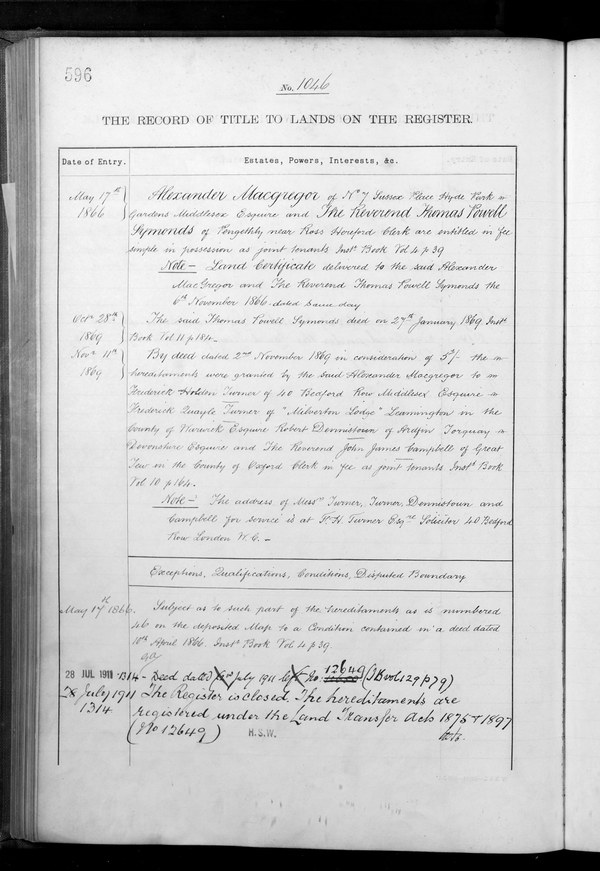 596
No. 1046
THE RECORD OF TITLE TO LANDS ON THE REGISTER.
Date of Entry.
Estates, Powers, Interests, &c.
May 17th 1866
Alexander Macgregor of No 7 Sussex Place Hyde Park
Gardens Middlesex Esquire and The Reverend Thomas Powell
Symonds of Pengethly near Ross Hereford Clerk are entitled in fee
simple in possession as joint tenants Instt Book Vol 4 p 39
Note – Land Certificate delivered to the said Alexander
MacGregor and The Reverend Thomas Powell Symonds the
6th November 1866. dated same day
Octr 28th 1869
The said Thomas Powell Symonds died on 27th January 1869 Instt
Book Vol 11 p
Novr 11th 1869
By deed dated 2nd November 1869 in consideration of 5/- the
hereditaments were granted by the said Alexander Macgregor to
Frederick Holden Turner of 40 Bedford Row Middlesex Esquire
Frederick Quayle Turner of "Milverton Lodge" Leamington in the
County of Warwick Esquire Robert Dennistoun of Torquay
Devonshire Esquire and The Reverend John James Campbell of Great
Tew in the County of Oxford Clerk in fee as joint tenants Instt Book
Vol 10 p 164.
Note – The address of Messrs Turner, Turner, Dennistoun and
Campbell for service is at F. H. Turner Esqre Solicitor 40 Bedford
Row London W. C. –
Exceptions, Qualifications, Conditions, Disputed Boundary
May 17th 1866.
Subject as to such part of the hereditaments as is numbered
46 on the deposited Map to a Condition contained in a deed dated
10th April 1866. Instt Book Vol 4 p 39
28 JUL 1911
1314 – Deed dated July 1911 No. 12649 (IB vol 129 p 79)
July 1911 The Register is closed. The hereditaments are
1314
registered under the Land Transfer Acts 1875 & 1897
(No 12649)
H.S.W.